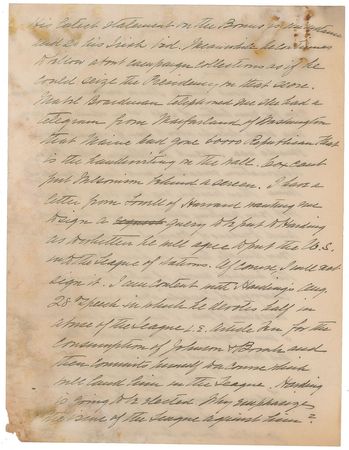 his latest statement on the Bonus
and to his Irish bid. Meanwhile he continues
to blow about campaign collections as if he
could seize the Presidency on that score.
Mabel Boardman telephoned me she had a
telegram from Macfarland of Washington
that Maine had gone 60000 Republican. That
is the handwriting on the wall. Cox cant
put Wilsonism behind a screen. I have a
letter from Lowell of Harvard wanting me
to sign a query to be put to Harding
as to whether he will agree to put the U.S.
into the League of Nations. Of course I will not
sign it. I am content with Harding's Aug.
28th speech in which he devotes half in
abuse of the League i.e. Article Ten for the
consumption of Johnson & Borah and
then commits himself to a course which
will land him in the League. Harding
is going to be elected. Why emphasize
the issue of the League against him?